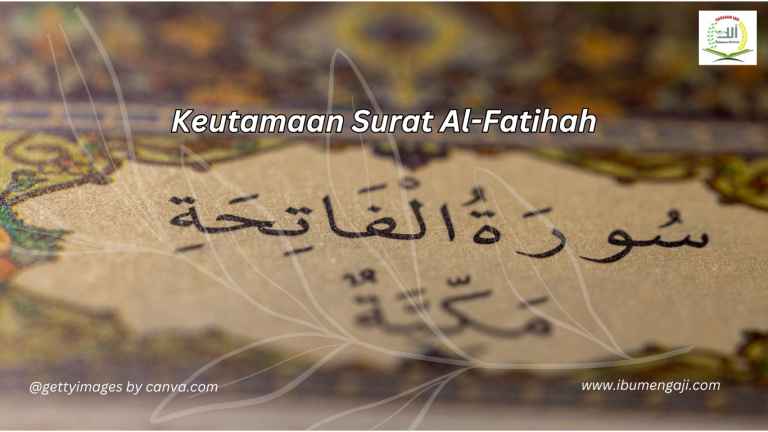 Keutamaan Surat Al-Fatihah
سُورَةُ الْفَاتِحَةِ
مَكِّيَّةٌ
@gettyimages by canva.com
www.ibumengaji.com